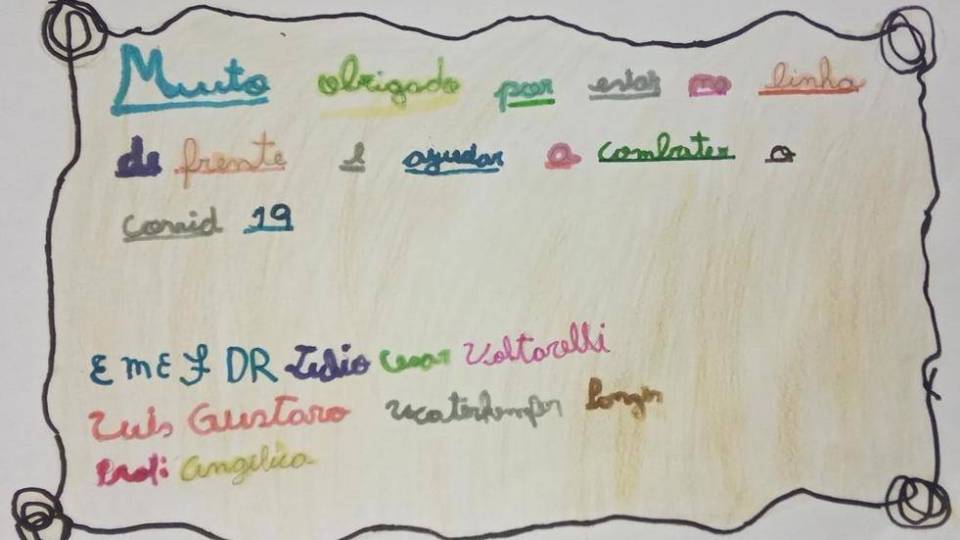 Muito obrigado por estar na linha
de frente e ajudar a combater o
corvid 19
EMEF DR Lidio Cesar Voltarelli
Luis Gustavo
Prof: Angelica